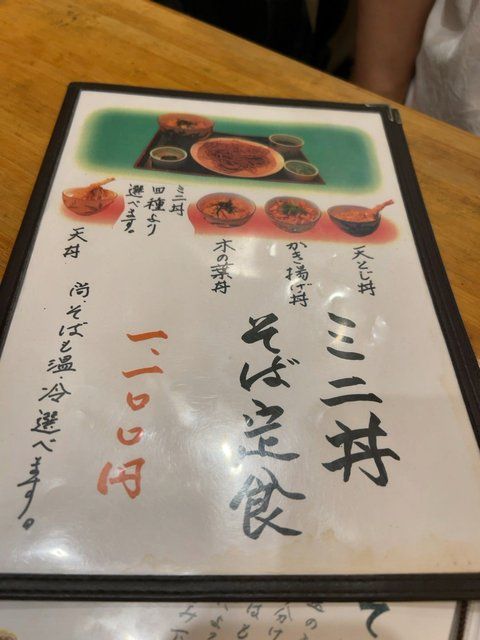 ミニ丼
四種より
選べます。
天とじ丼
かき揚げ丼
木の葉丼
天丼
ミニ丼
そば定食
一、一〇〇円
尚そばも温・冷選べます。